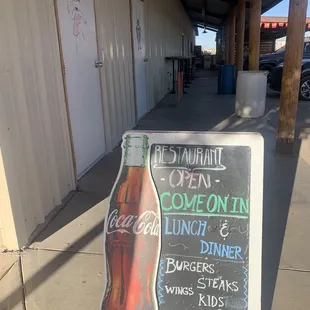 RESTAURANT
-OPEN-
COME ON IN
LUNCH &
DINNER
BURGERS
STEAKS
WINGS
KIDS
Coca-Cola